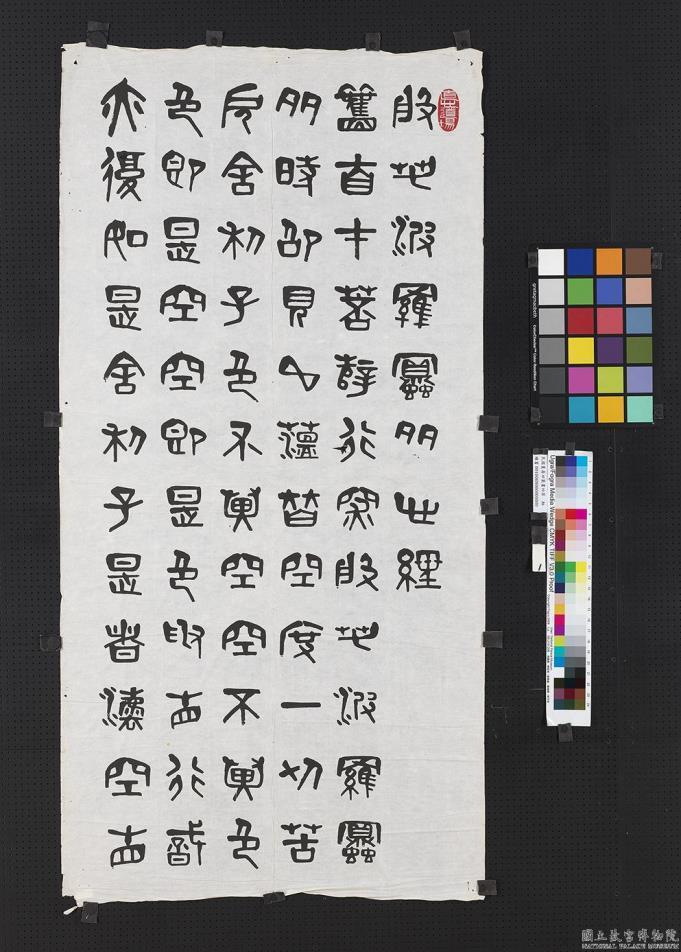 般若波羅蜜多心經
觀自在菩薩行深般若波羅蜜
多時照見五蘊皆空度一切苦
厄舍利子色不異空空不異色
色即是空空即是色受想行識
亦復如是舍利子是諸法空相
Ugra/Fogra Media Wedge CMYK TIFF V3.0 Proof
國立故宮博物院
NATIONAL PALACE MUSEUM